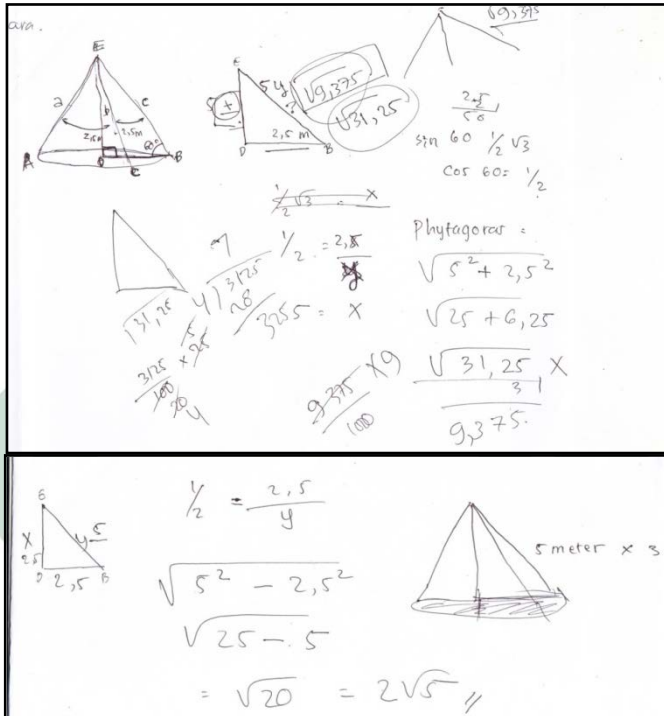 ara.
E
a
e
b
2,5m
60°
A
D
C
B
E
5 y
√9,375
?
√31,25
2,5 m
D
B
√9,375
2,5
sin 60 ½ √3
cos 60 = ½
½ √3 = x
½ = 2,5
y
3255 = x
√31,25
4 √3125
28
3125 x 25
100
20
4
9375 x 9
1000
Phytagoras =
√5² + 2,5²
√25 + 6,25
√31,25 x
3
9,375.
E
X
2,5
y 5
D 2,5 B
½ = 2,5
y
√5² - 2,5²
√25 - 5
= √20 = 2√5 //
5 meter x 3